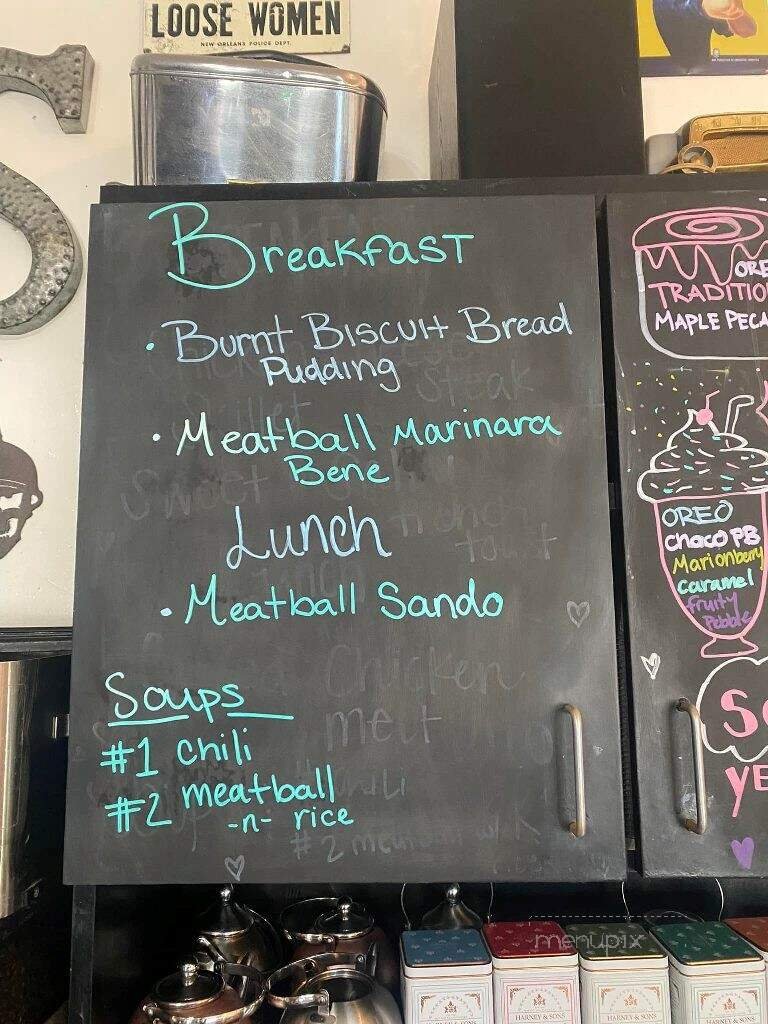 LOOSE WOMEN
NEW ORLEANS POLICE DEPT.
Breakfast
• Burnt Biscuit Bread
Pudding
• Meatball Marinara
Bene
Lunch
• Meatball Sando
Soups
#1 chili
#2 meatball
-n- rice
Chicken
melt
steak
Sweet
french
toast
ORE
TRADITIO
MAPLE PECA
OREO
Choco PB
Marionberry
caramel
fruity
Pebble
YE
menupix
HARNEY & SONS
HARNEY & SONS
HARNEY & SONS